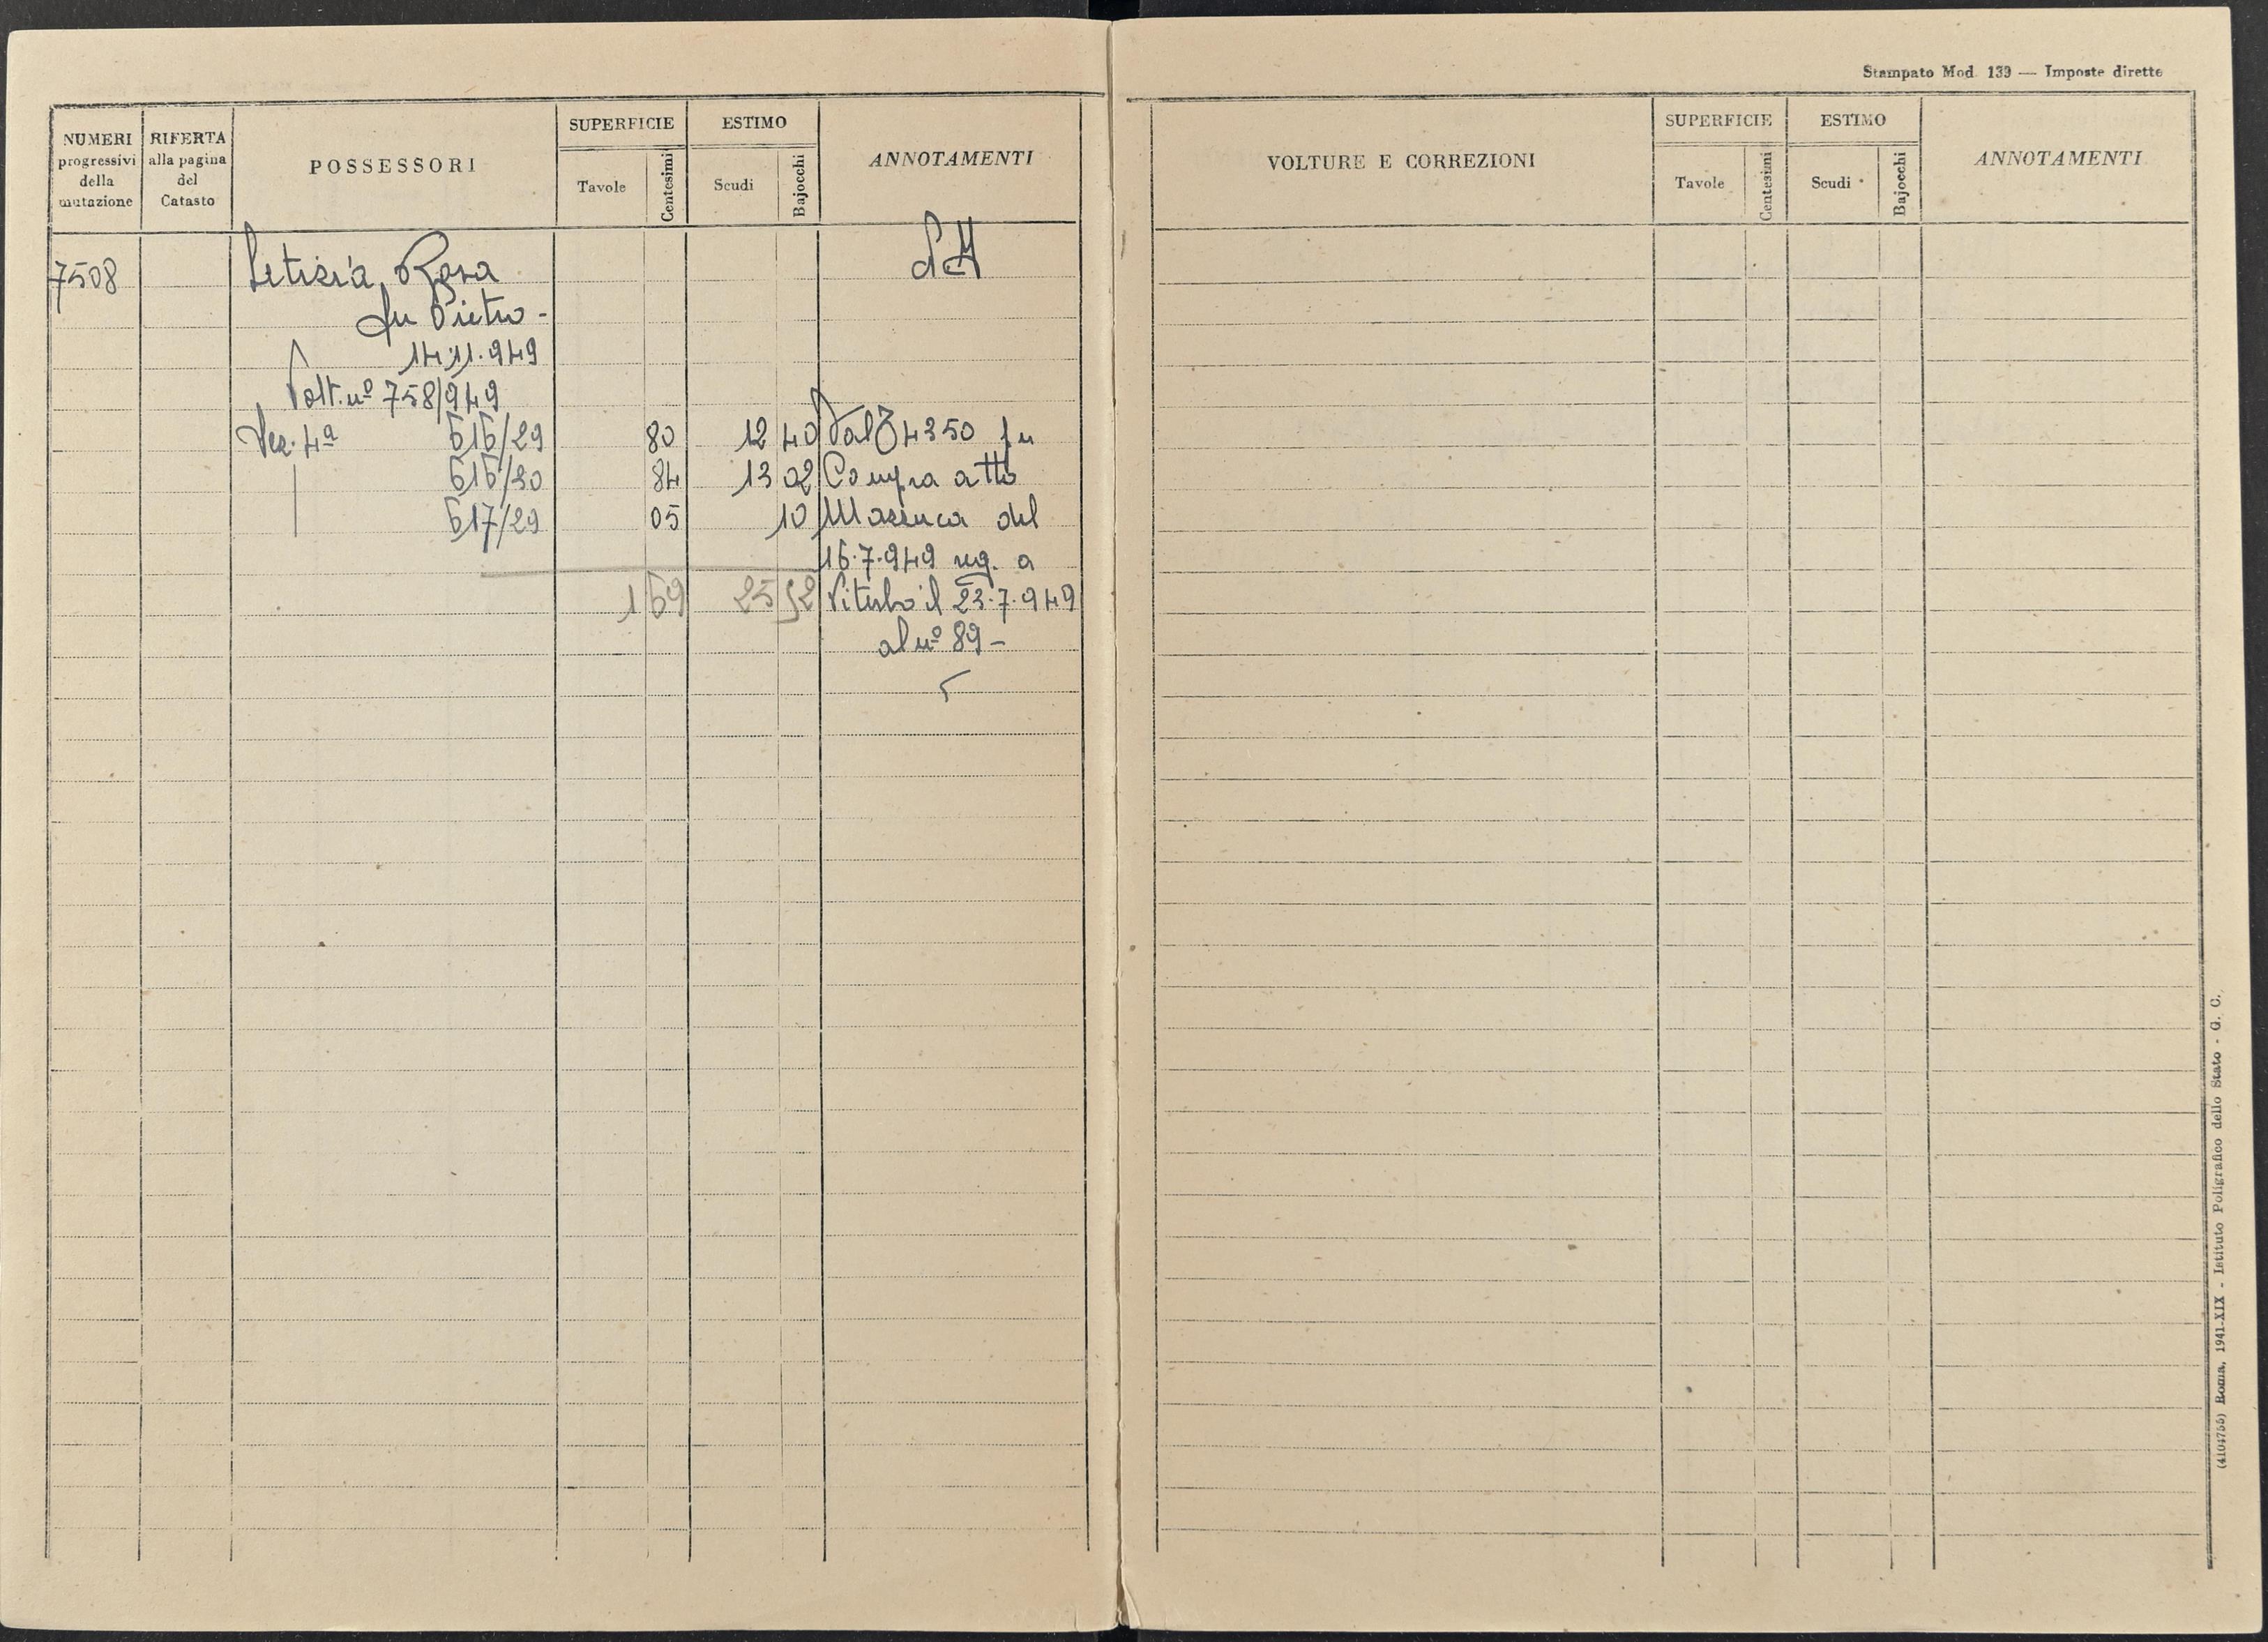 Stampato Mod. 139 — Imposte dirette
NUMERI progressivi della mutazione
RIFERTA alla pagina del Catasto
POSSESSORI
SUPERFICIE
Tavole
Centesimi
ESTIMO
Scudi
Bajocchi
ANNOTAMENTI
VOLTURE E CORREZIONI
SUPERFICIE
Tavole
Centesimi
ESTIMO
Scudi
Bajocchi
ANNOTAMENTI
7508 Letizia Rosa
fu Pietro -
14.11.949
Volt. nº 758/949
Sez. 4ª 616/29 80 12 40
616/30 84 13 02
617/29 05 10
1 69 25 52
Val 4350 per
Compra atto
del
16.7.949 reg. a
Viterbo il 23.7.949
al nº 89 -
(4104755) Roma, 1941-XIX - Istituto Poligrafico dello Stato - G. C.